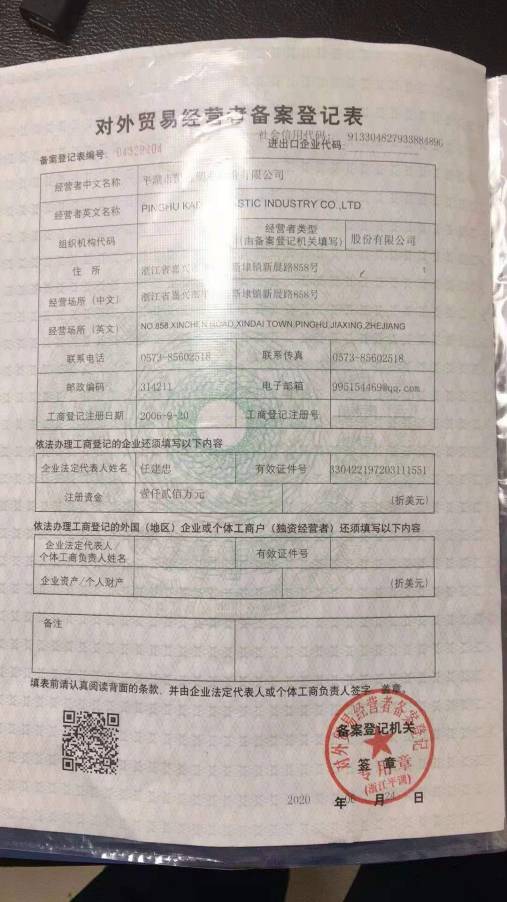 对外贸易经营者备案登记表
备案登记表编号: 04329404
社会信用代码: 91330482793388489G
进出口企业代码:
经营者中文名称 平湖市 有限公司
经营者英文名称 PINGHU INDUSTRY CO.,LTD
组织机构代码 经营者类型 (由备案登记机关填写) 股份有限公司
住 所 浙江省嘉兴 新埭镇新晨路858号
经营场所(中文) 浙江省嘉兴 新埭镇新晨路858号
经营场所(英文) NO.858,XINCHEN ROAD,XINDAI TOWN,PINGHU,JIAXING,ZHEJIANG
联系电话 0573-85602518 联系传真 0573-85602518
邮政编码 314211 电子邮箱 995154469@qq.com
工商登记注册日期 2006-9-20 工商登记注册号
依法办理工商登记的企业还须填写以下内容
企业法定代表人姓名 任建忠 有效证件号 330422197203111551
注册资金 壹仟贰佰万元 (折美元)
依法办理工商登记的外国(地区)企业或个体工商户(独资经营者)还须填写以下内容
企业法定代表人/
个体工商负责人姓名 有效证件号
企业资产/个人财产 (折美元)
备注
填表前请认真阅读背面的条款,并由企业法定代表人或个体工商负责人签字、盖章。
对外贸易经营者备案登记
专用章
(浙江平湖)
备案登记机关
签 章
2020 年 月 24 日